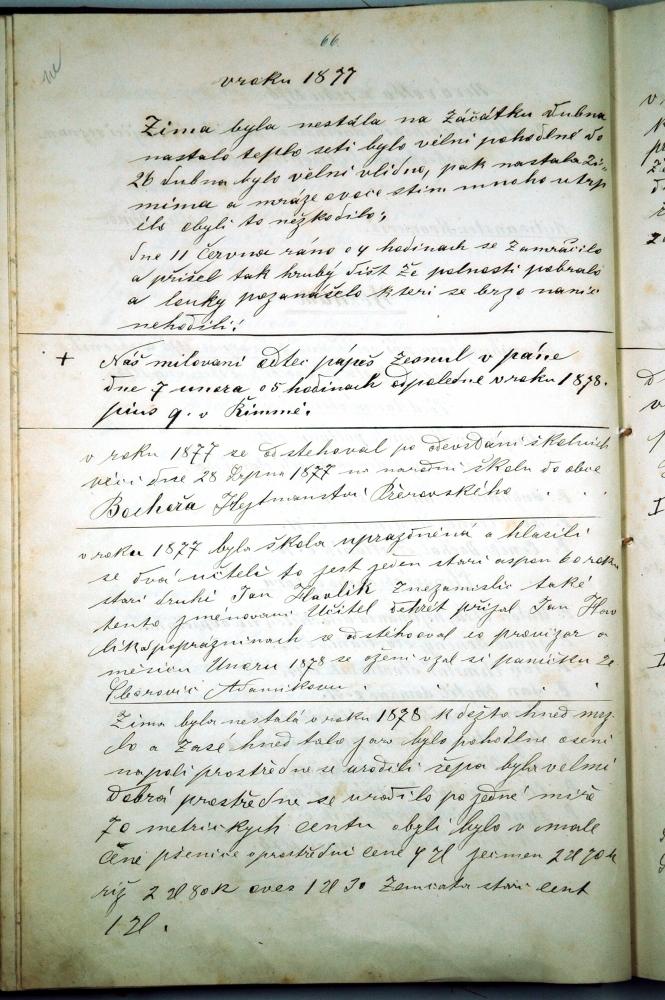 66
v roku 1877
Zima byla nestála na Záčátku Dubna
nastalo teplo seti bylo velni pohodlné do
26 dubna bylo velni vlidno, pak nastala Zi=
mima a mráze ovoce stim mnoho utrp
ělo obyli to nezkodilo,
dne 11 Června ráno o 4 hodinach se Zamračilo
a přišel tak hrubý dišt že polnosti pobralo
a louky pozanášelo kteri se brzo nanic
nehodili!
+ Náš milovani otec pápeš Zesnul v páne
dne 7 unora o 5 hodinach odpoledne v roku 1878.
pius 9. v Římmě.
v roku 1877 se odstehoval po odevzdáni školnich
věci dne 28 Srpna 1877 na narodni školu do obce
Bochořa Hejtmanstvi Přerovského
v roku 1877 byla škola uprazdněná a hlasili
se dvá učiteli to jest jeden stari aspon 60 roku
stari druhi Jan Havlik Znezamislic také
tento jménovani Učitel dekrét prijal Jan Hav
lik a poprazninach se odstěhoval co provizor a
měsicu Unoru 1878 se oženi vzal si paničku Ze
Zborovic Adamikovu
Zima byla nestalá v roku 1878 k dejto hned mrz
lo a Zasé hned talo jaro bylo pohodlne oseni
napoli prostředne se urodili řepa byla velmi
dobrá prostředne se urodilo po jedné miře
70 metrickych centu obyli bylo v male
čené pšenice o prostředni cene 4 Zl ječmen 2 Zl 70 k
riž 2 Zl 80 k oves 1 Zl 30 Zemčata stari cent
1 Zl.